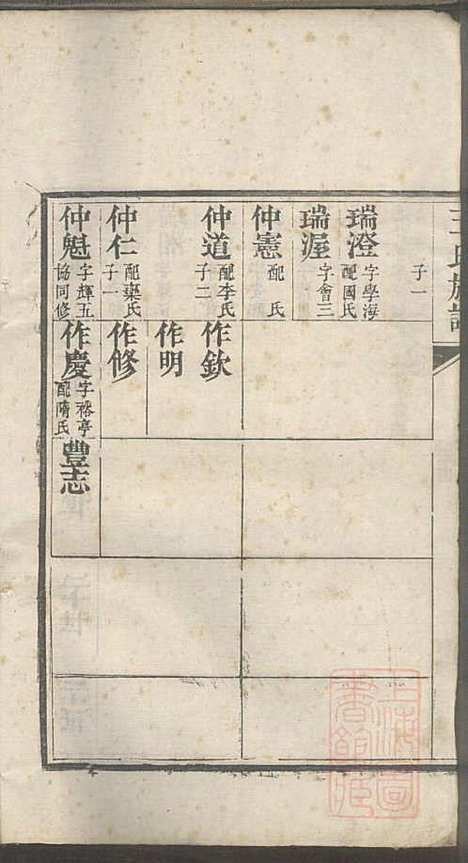 王氏族譜
子一
瑞澄 字學海 配國氏
瑞渥 字會三
仲憲 配 氏
仲道 配李氏 子二
仲仁 配藥氏 子一
仲魁 字輝五 協同修
作欽
作明
作修
作慶 字裕亭 配隋氏
豊志
上海圖書館藏